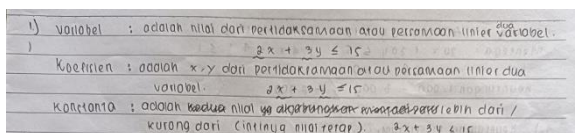 1.) variabel : adalah nilai dari pertidaksamaan atau persamaan linier dua variabel.
2x + 3y ≤ 15
Koefisien : adalah x, y dari pertidaksamaan atau persamaan linier dua
variabel. 2x + 3y ≤ 15
Konstanta : adalah kedua nilai yg lebih dari /
kurang dari (intinya nilai tetap). 2x + 3y ≤ 15